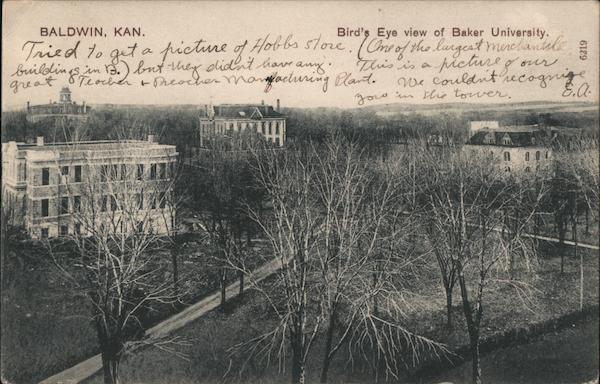 BALDWIN, KAN.
Bird's Eye view of Baker University.
Tried to get a picture of Hobbs store. (One of the largest Merchantile
buildings in B.) but they didn't have any. This is a picture of our
great Teacher + Preacher Manufacturing Plant. We couldn't recognize
you in the tower. E.A.
6219